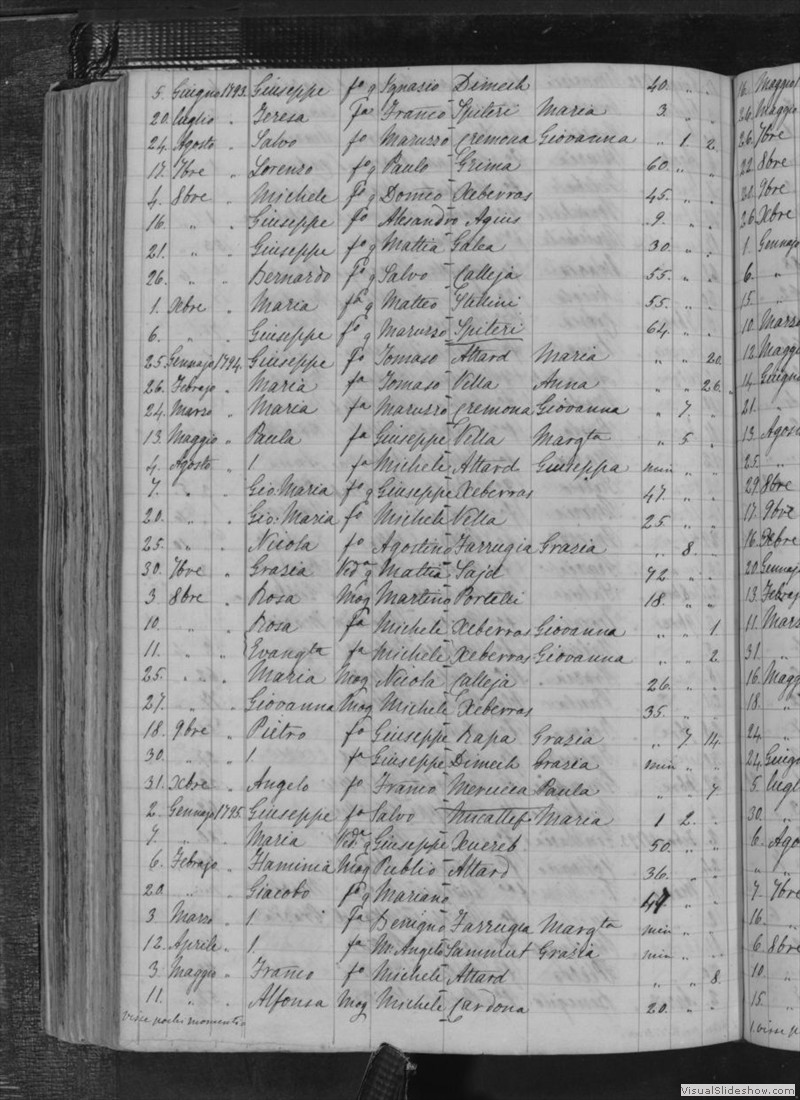 5. Giugno 1793. Giuseppe fo q Ignazio Dimech 40. " .
20. luglio " Teresa fa Franco Spiteri Maria 3. " .
24. Agosto " Salvo fo Maruzzo Cremona Giovanna " 1 2.
17. 7bre " Lorenzo fo q Paulo Grima 60. " "
4. 8bre " Michele fo q Domco Xeberras 45. " .
16. " " Giuseppe fo Alesandro Agius 9. " .
21. " " Giuseppe fo q Mattia Galea 30. " .
26. " " Bernardo fo q Salvo Calleja 55. " .
1. Xbre " Maria fa q Matteo Stellini 55. " .
6. " " Giuseppe fo q Maruzzo Spiteri 64. " .
25. Gennajo 1794. Giuseppe fo Tomaso Attard Maria " " 20.
26. Febrajo " Maria fa Tomaso Villa Anna " " 26.
24. Marzo " Maria fa Maruzzo Cremona Giovanna " 7. .
13. Maggio " Paula fa Giuseppe Vella Margta " 5 .
4. Agosto " 1 fa Micheli Attard Giuseppa min " .
7. " " Gio: Maria fo q Giuseppe Xeberras 47. " .
20. " " Gio: Maria fo Micheli Villa 25 " .
25. " " Nicola fo Agostino Farrugia Grazia " 8. .
30. 7bre " Grazia Vida q Mattia Sajd 72 " .
3. 8bre " Rosa Mog Martino Portelli 18. " "
10. " " Rosa fa Micheli Xeberras Giovanna " " 1
11. " " Evangta fa Micheli Xeberras Giovanna " " 2
25. " " Maria Mog Nicola Calleja 26. " .
27. " " Giovanna Mog Micheli Xeberras 35. " .
18. 9bre " Pietro fo Giuseppe Rapa Grazia " 7 14.
30. " " 1 fa Giuseppe Dimech Grazia min " .
31. Xbre " Angelo fo Franco Mercieca Paula " " 7
2. Gennajo 1795. Giuseppe fo Salvo Micallef Maria 1 2 .
7 " " Maria Vida q Giuseppe Xuereb 50. " .
6. Febrajo " Flaminia Mog Publio Attard 36. " .
20. " " Giacobo fo q Mariano 47 " .
3. Marzo " 1 fa Benigno Farrugia Margta min " .
12. Aprile " 1. fa M. Angelo Sammut Grazia min " .
3. Maggio " Franco fo Micheli Attard " " 8.
11. " " Alfonsa Mog Micheli Cardona 20. " .
visse pochi momenti
16. Maggio
26. Maggio
26. 7bre
22. 8bre
9bre
26. Xbre
1. Gennajo
6. "
15. "
10. Marzo
12. Maggio
14. Giugno
21. "
13. Agosto
25. "
29. 8bre
17. 9bre
16. Xbre
20. Gennajo
13. Febrajo
11. Marzo
31. "
16. Maggio
18. "
24. "
24. Giugno
5. lugl
30. "
6. Ago
" "
7. 7bre
16. "
6. 8bre
10. "
15. "
1. visse p
VisualSlideshow.com